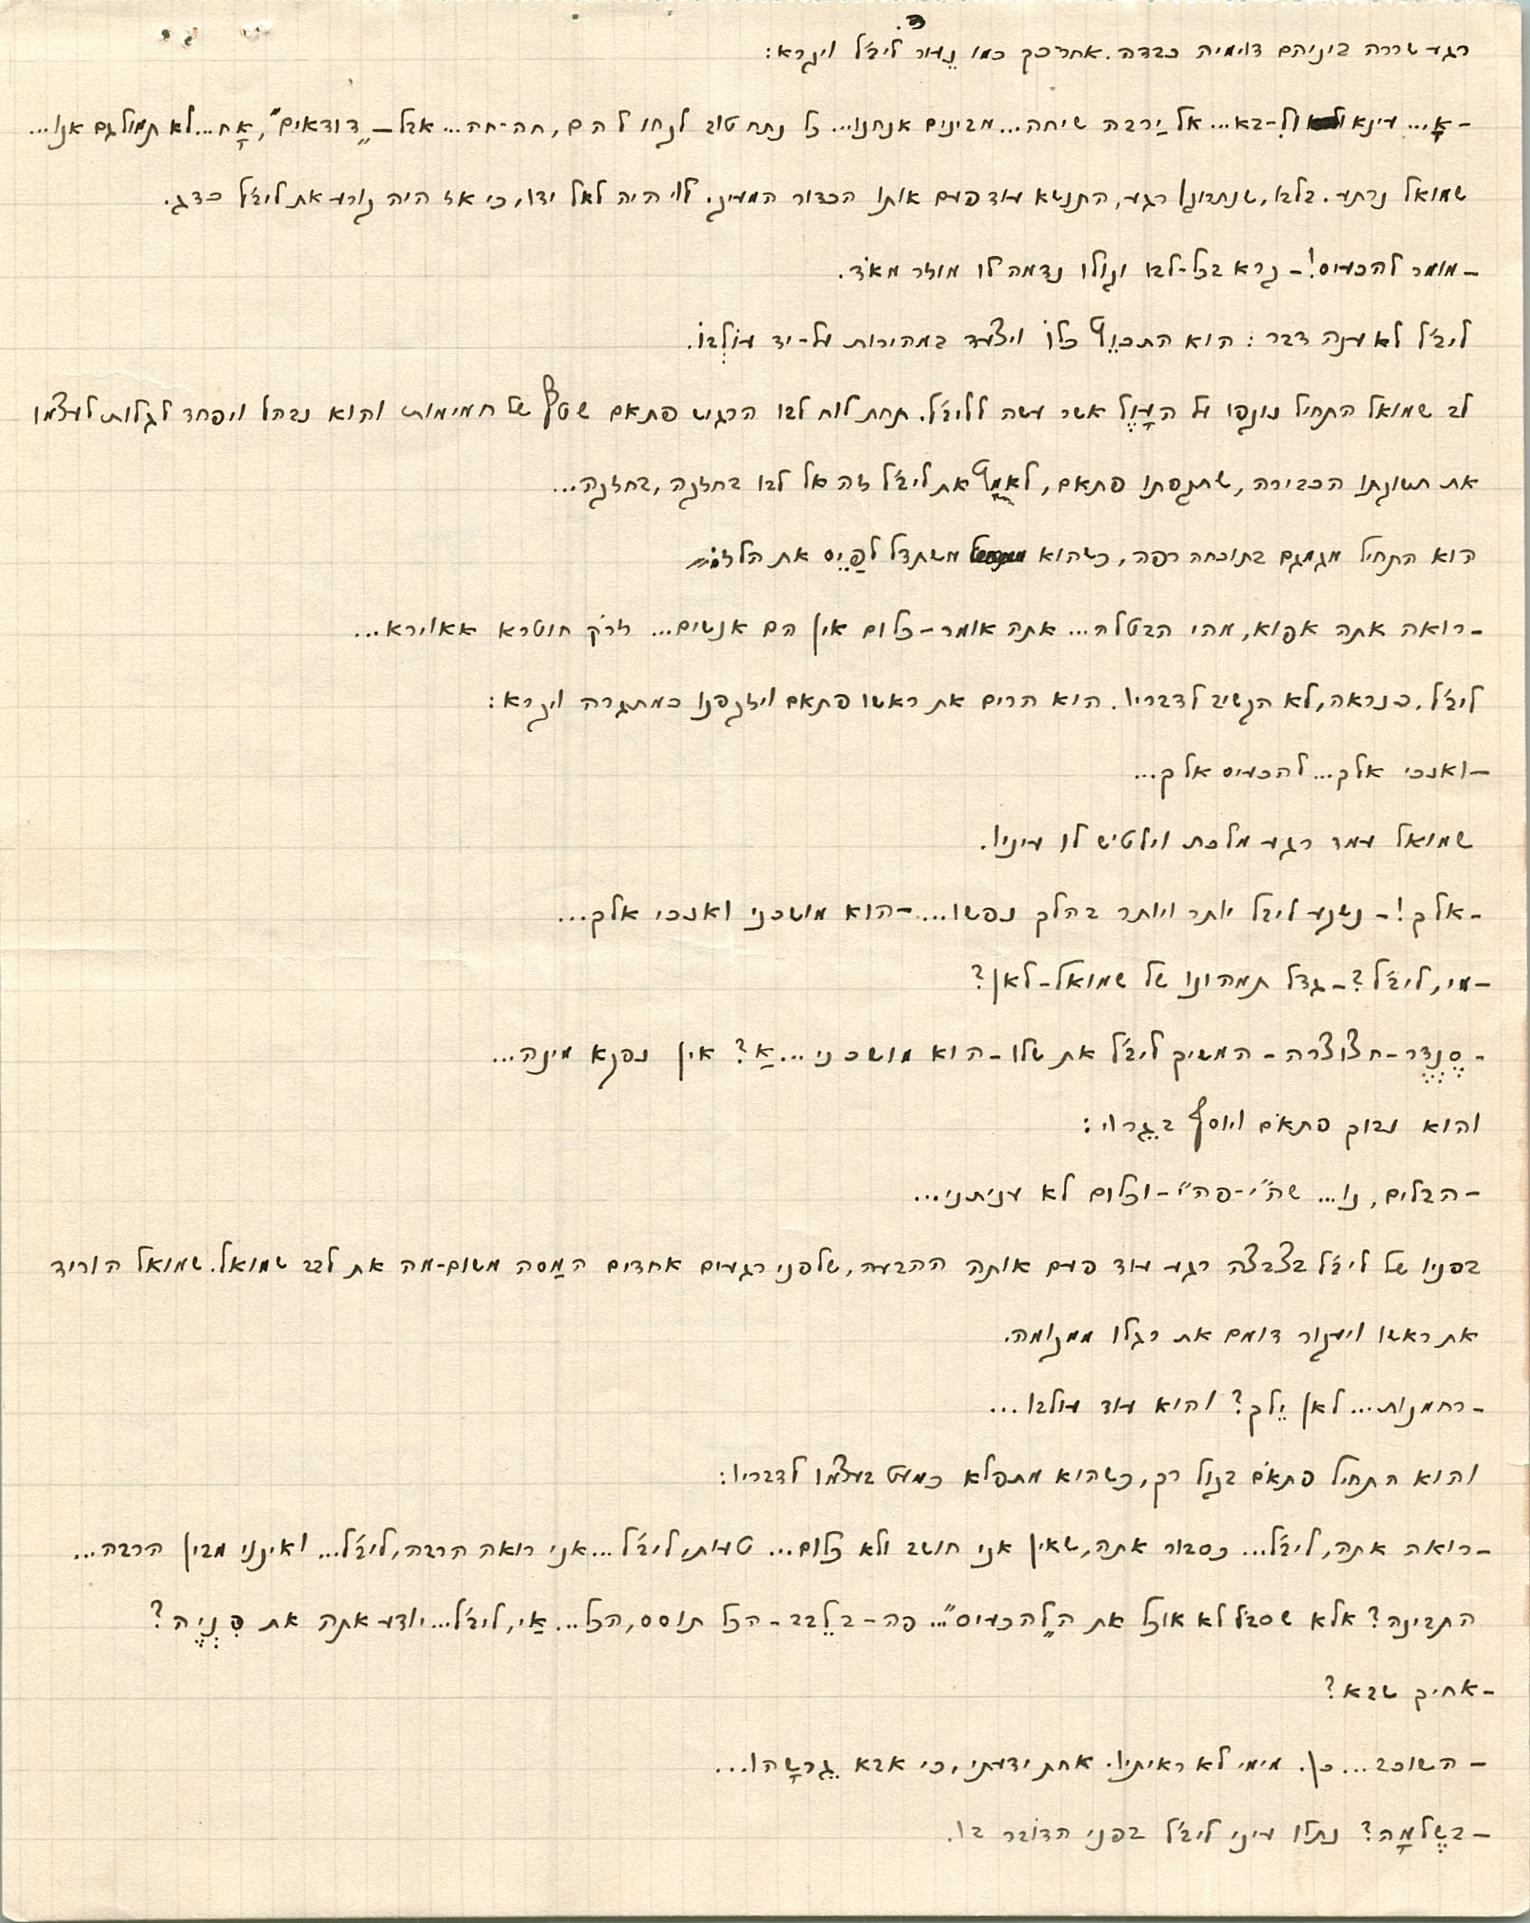 .3
רגע שררה ביניהם דוימיה כבדה. אחר־כך כמו נֵעור ליבל ויקרא:
-אָי... עינא ולִ-בא... אל יַרבה שיחה... מבינים אנחנו... כל נתח טוב לקחו להם, חה-חה... אבל – "דודאים", אָח... לא תמול גם אנו...
שמואל נרתע. בלבו, שנתרוקן רגע, התנשא עוד פעם אותו הכדור המעיק. לוי היה לאל ידו, כי אז היה קורע את ליבל כדג.
-מומר להכעיס! – קרא בכל-לבו וקולו נדמה לו מוזר מאֹד.
ליבל לא ענה דבר: הוא התכוֵּף כלוֹ ויצעד במהירות על-יד עוֹלְבוֹ.
לב שמואל התחיל נוקפו על העָוֶל אשר עשה לליבל. תחת לוח לבו הרגיש פתאם שטף של חמימות והוא נבהל ויפחד לגלות לעצמו
את תשוקתו הכבירה, שתקפתו פתאם, לאמֵּץ את ליבל זה אל לבו בחזקה, בחזקה...
הוא התחיל מגמגם בתוכחה רפה, כשהוא משתדל לפַיֵּס את הלזוֹ:
-רואה אתה אפוא, מהי הבטלה... אתה אומר – כלום אין הם אנשים... זרֹק חוטרא אאוירא...
ליבל, כנראה, לא הקשיב לדבריו. הוא הרים את ראשו פתאם ויזקפנו כמתגרה ויקרא:
-ואנכי אלך... להכעיס אלך...
שמואל עמד רגע מלכת וילטיש לו עיניו.
-אלך! – נשנע ליבל יותר ויותר בהלך נפשו... – הוא מושכני ואנכי אלך...
-מי, ליבל? – גדל תמהונו של שמואל – לאן?
-סֶנְדֶר-חצוצרה – המשיך ליבל את שלו – הוא מושכני... אַ? אין נפקא מינה...
והוא נבוך פתאֹם ויוסף בגֵרוי:
-הבלים, נו... שה"י-פה"י – וכלום לא עניתני...
בפניו של ליבל בצבצה רגע עוד פעם אותה ההבעה, שלפני רגעים אחדים המַסה משום-מה את לבב שמואל. שמואל הוריד
את ראשו ויעקור דומם את רגלו ממקומה.
-רחמנות... לאן יֵלך? והוא עוד עולבו...
והוא התחיל פתאֹם בקול רך, כשהוא מתפלא כמעט בעצמו לדבריו:
-רואה אתה, ליבל... כסבור אתה, שאין אני חושב ולא כלום... טעותי ליבל... אני רואה הרבה, ליבל... ואינני מבין הרבה...
התבינה? אלא שסבֹל לא אוכל את ה"להכעיס"... פה – בלֵבב – הכל תוסס, הכל... אַי, ליבל... יודע אתה את פִּנְיֶה?
-אחיך שבא?
-השוכב... כן. מימי לא ראיתיו. אחת ידעתי, כי אבא גֵרשָהו...
-בשֶלמָה? נתלו עיני ליבל בפני הדובר בו.